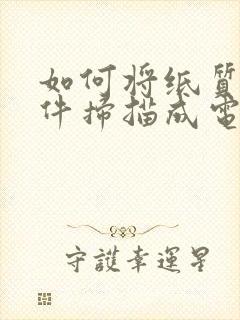 如何将纸质
件掃描成電
守護幸運星